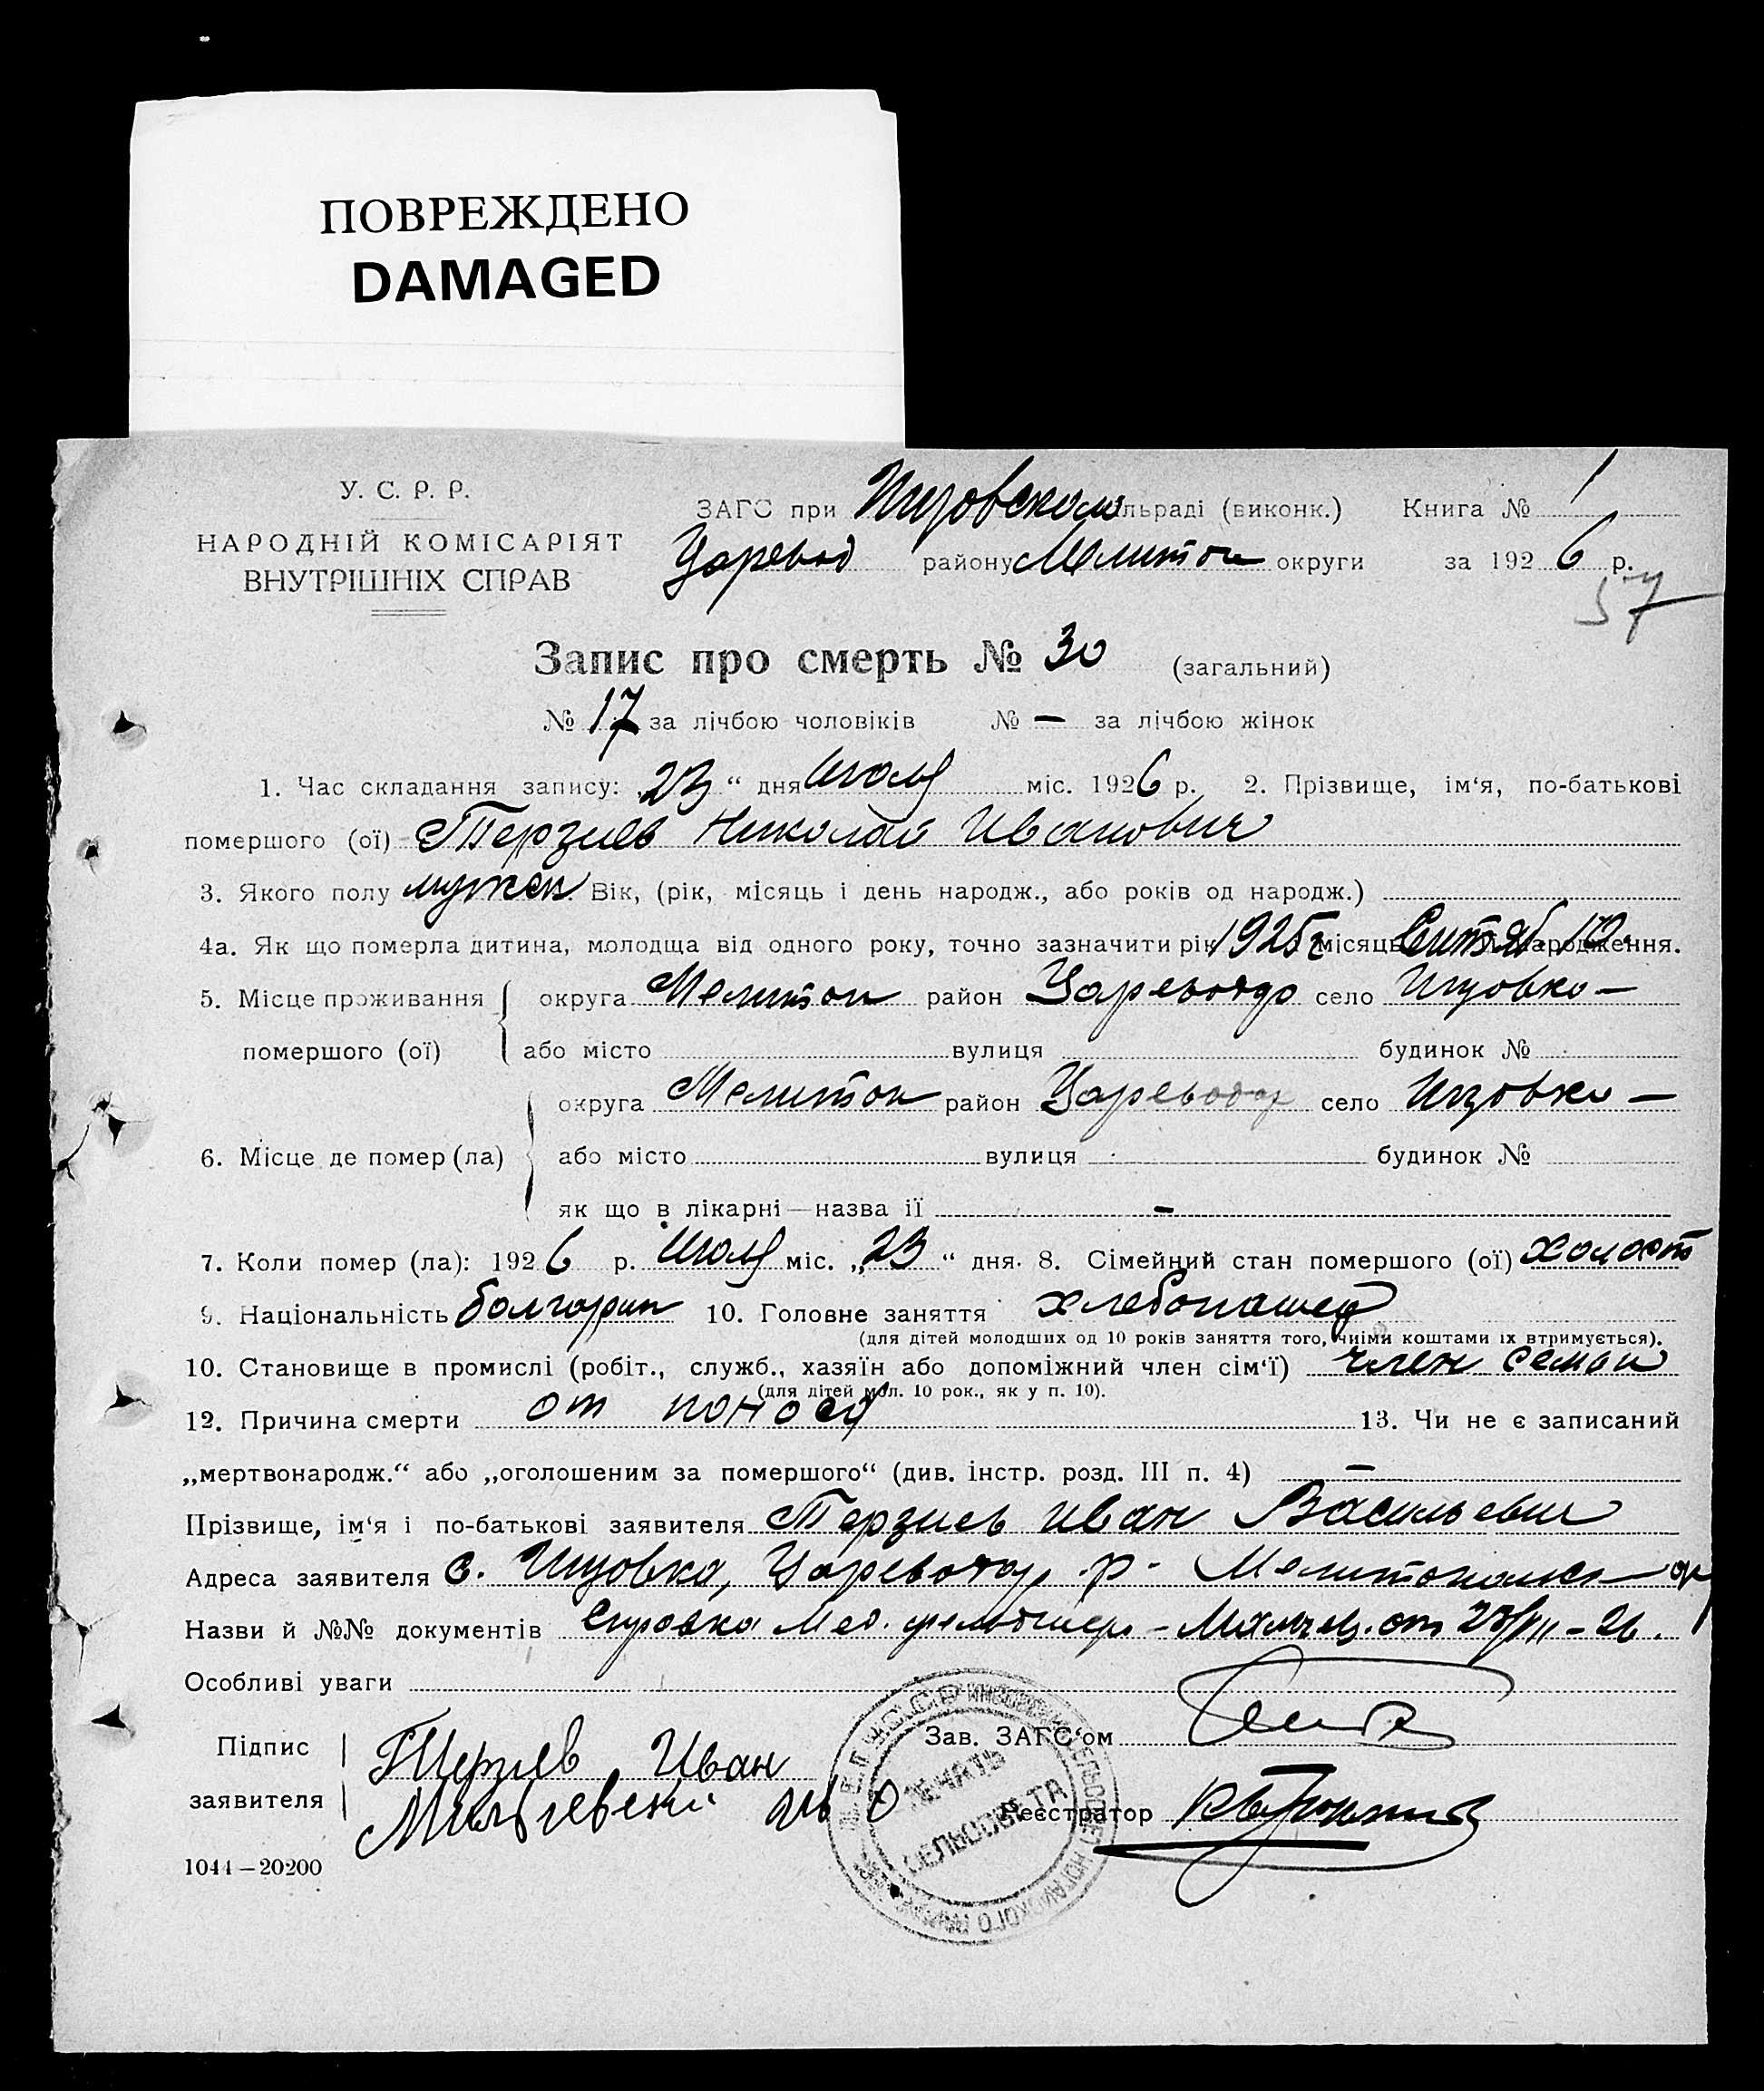 ПОВРЕЖДЕНО
DAMAGED
У. С. Р. Р.
НАРОДНІЙ КОМІСАРІЯТ
ВНУТРІШНІХ СПРАВ
ЗАГС при льраді (виконк.) Книга № 1
Царевод району Мелитоп округи за 1926 р.
57
Запис про смерть № 30 (загальний)
№ 17 за лічбою чоловіків № — за лічбою жінок
1. Час складання запису: „23“ дня Июля міс. 1926 р. 2. Прізвище, ім‘я, по-батькові
помершого (ої) Терзиев Николай Иванович
3. Якого полу мужск Вік, (рік, місяць і день народж., або років од народж.)
4а. Як що померла дитина, молодща від одного року, точно зазначити рік 1925 г місяць Сентяб 10 народження.
5. Місце проживання округа Мелитоп район село
помершого (ої) або місто вулиця будинок №
округа Мелитоп район село
6. Місце де помер (ла) або місто вулиця будинок №
як що в лікарні — назва ії —
7. Коли помер (ла): 1926 р. Июля міс. „23“ дня. 8. Сімейний стан помершого (ої) холост
9. Національність болгарин 10. Головне заняття хлебопашец
(для дітей молодших од 10 років заняття того, чиїми коштами їх втримується).
10. Становище в промислі (робіт., служб., хазяїн або допоміжний член сім‘ї) член семьи
(для дітей мол. 10 рок., як у п. 10).
12. Причина смерти от поноса 13. Чи не є записаний
„мертвонародж.“ або „оголошеним за помершого“ (див. інстр. розд. III п. 4) —
Прізвище, ім‘я і по-батькові заявителя Терзиев Иван Васильевич
Адреса заявителя с.
Назви й №№ документів Справка Мед. от 23/VII – 26.
Особливі уваги
Підпис Терзиев Иван Зав. ЗАГС‘ом
заявителя Реєстратор
ПЕЧАТЬ
СЕЛЬСОВЕТА
1044 — 20200